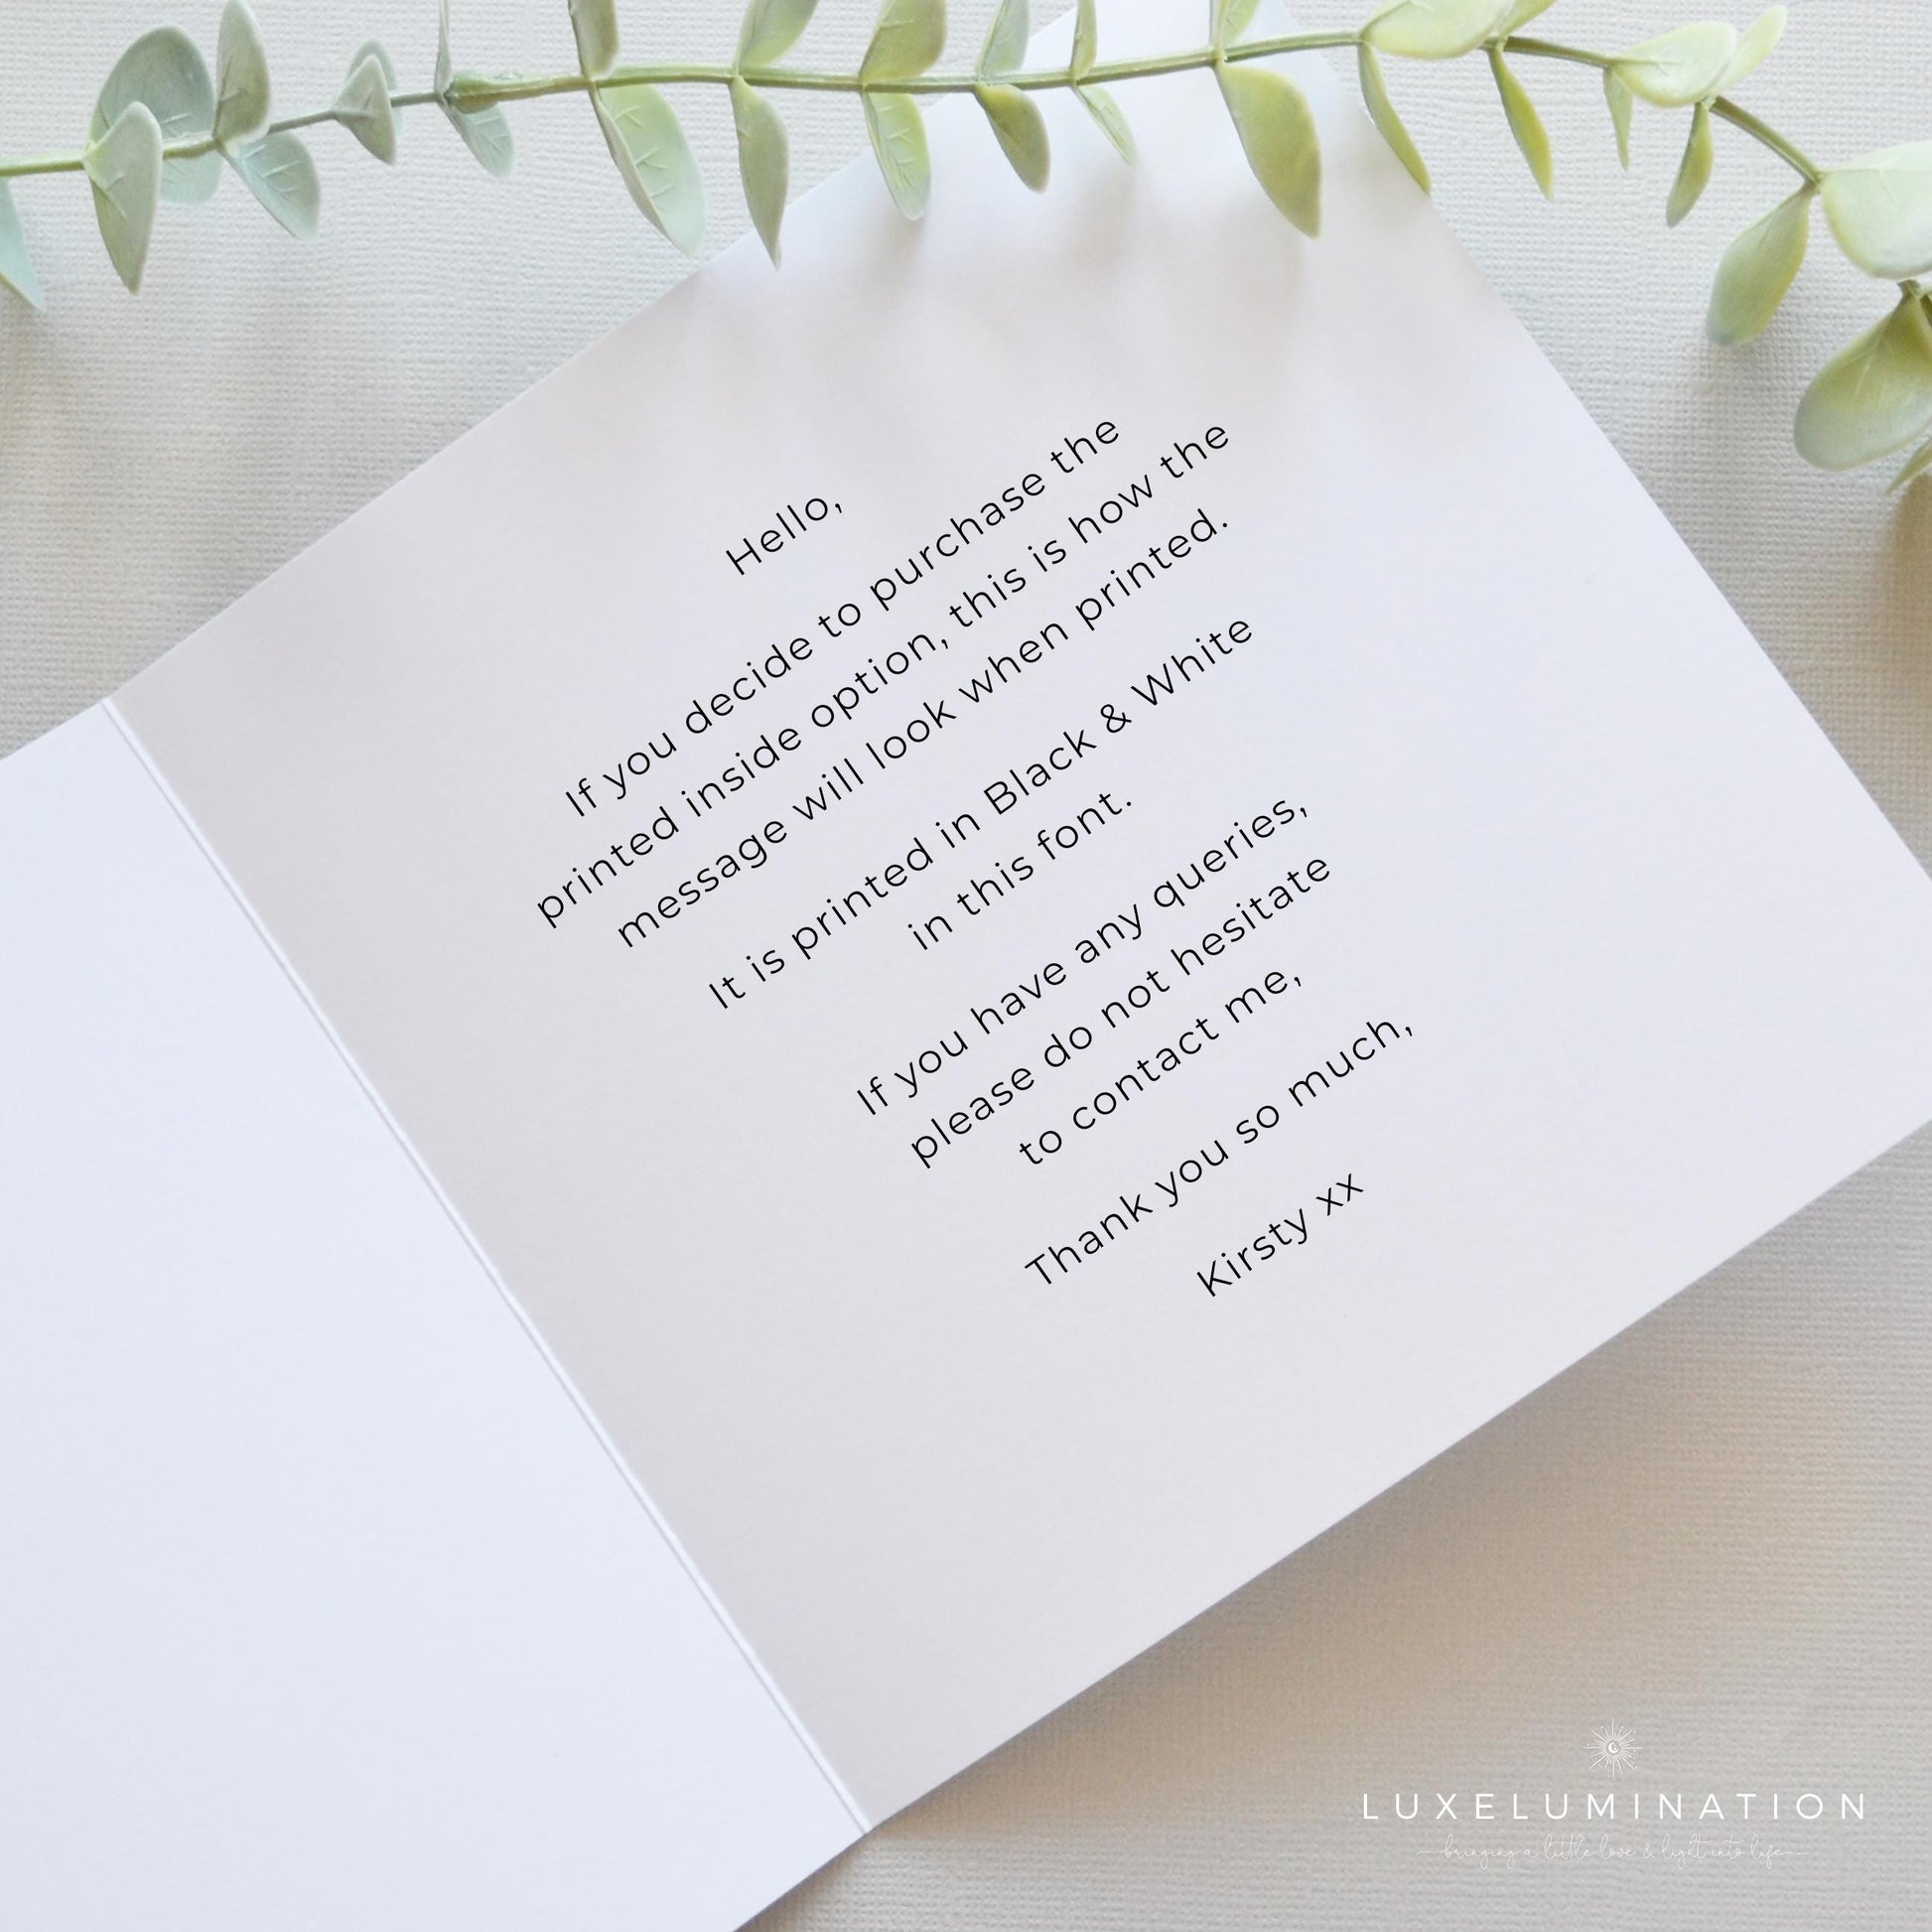 Hello,
If you decide to purchase the
printed inside option, this is how the
message will look when printed.
It is printed in Black & White
in this font.
If you have any queries,
please do not hesitate
to contact me,
Thank you so much,
Kirsty xx
LUXELUMINATION
bringing a little love & light into life